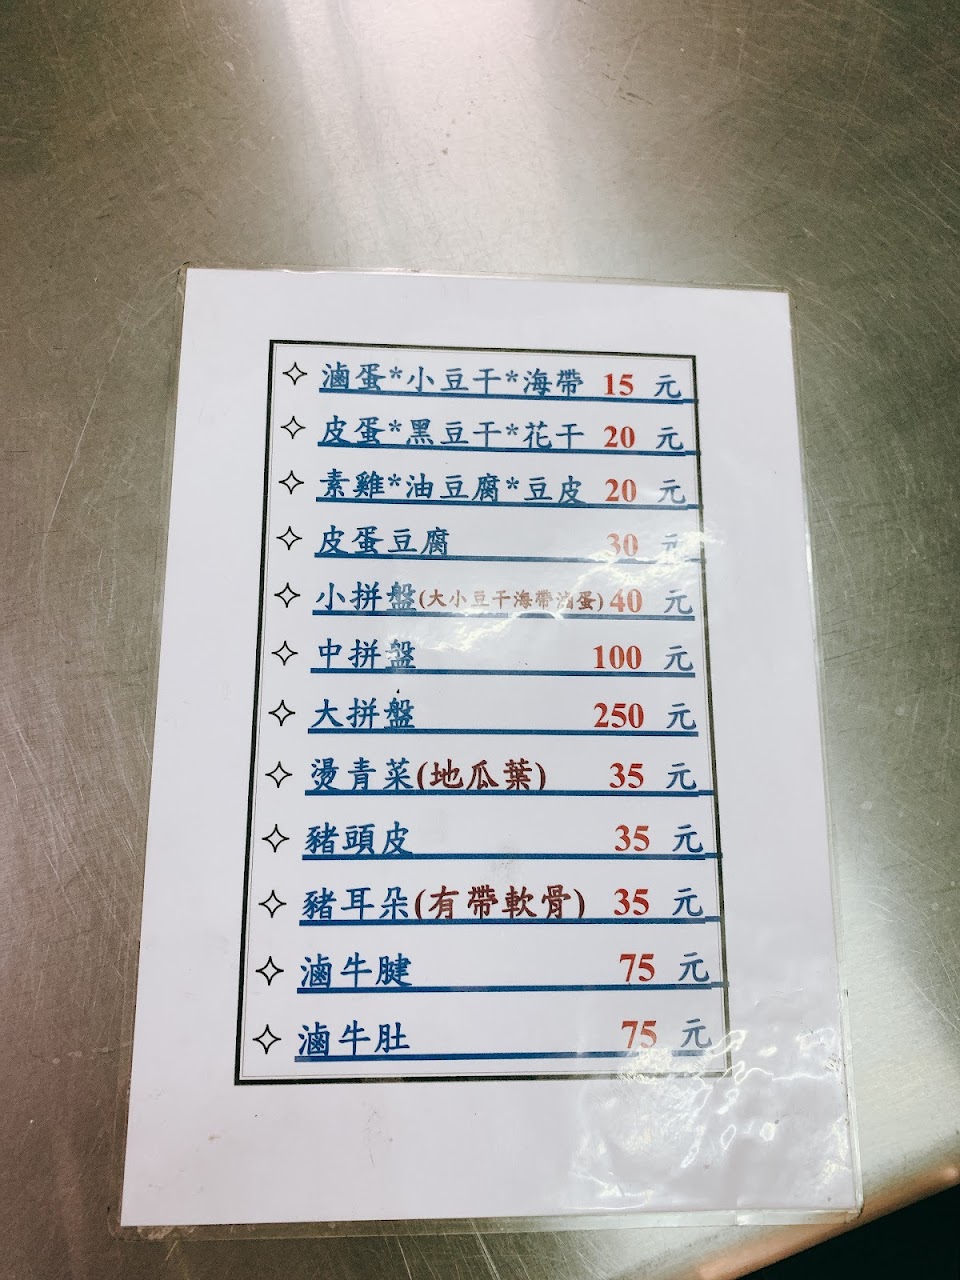 ✧ 滷蛋*小豆干*海帶 15 元
✧ 皮蛋*黑豆干*花干 20 元
✧ 素雞*油豆腐*豆皮 20 元
✧ 皮蛋豆腐 30 元
✧ 小拼盤(大小豆干海帶滷蛋) 40 元
✧ 中拼盤 100 元
✧ 大拼盤 250 元
✧ 燙青菜(地瓜葉) 35 元
✧ 豬頭皮 35 元
✧ 豬耳朵(有帶軟骨) 35 元
✧ 滷牛腱 75 元
✧ 滷牛肚 75 元